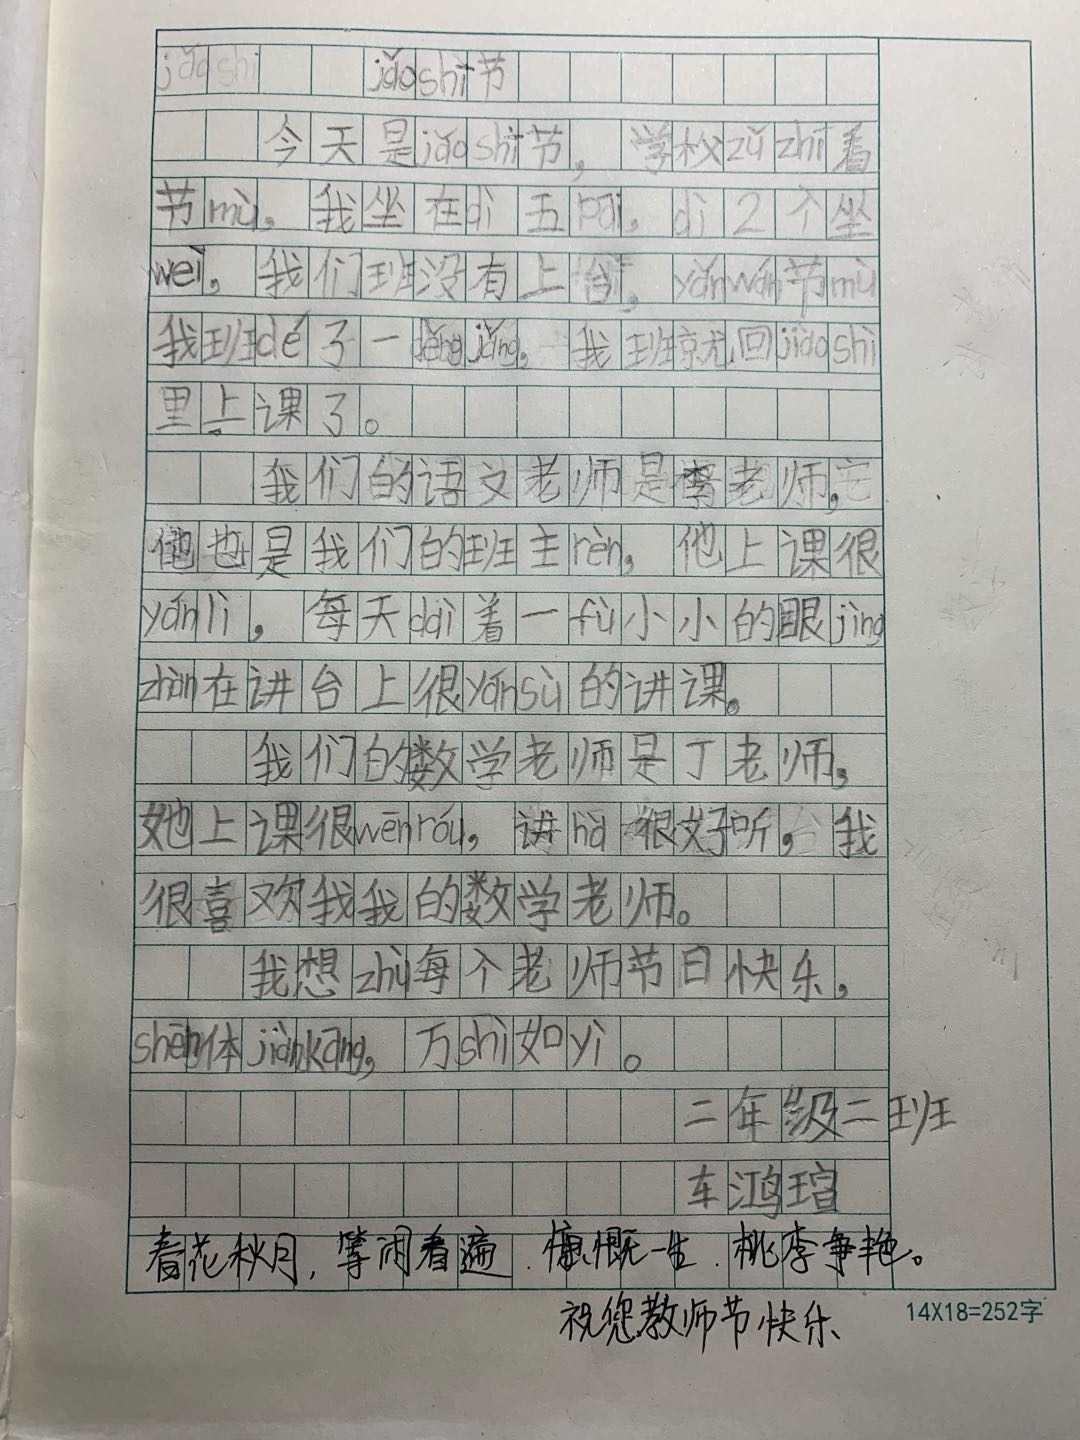 jiǎoshi jiǎoshī节
今天是jiǎoshī节，学校zǔzhī看
节mù。我坐在dì五pái，dì2个坐
weì。我们班没有上台，yǎnwán节mù
我班dé了一děngjiǎng。我班就回jiàoshì
里上课了。
我们的语文老师是李老师，
他也是我们的班主rèn，他上课很
yánlì，每天dài着一fù小小的眼jìng
zhàn在讲台上很yánsù的讲课。
我们的数学老师是丁老师，
她上课很wēnróu，讲hà很好听，我
很喜欢我我的数学老师。
我想zhù每个老师节日快乐，
shēn体jiànkāng，万shì如yì。
二年级二班
车鸿瑄
春花秋月，等闲看遍．慷慨一生．桃李争艳。
祝您教师节快乐
14X18=252字